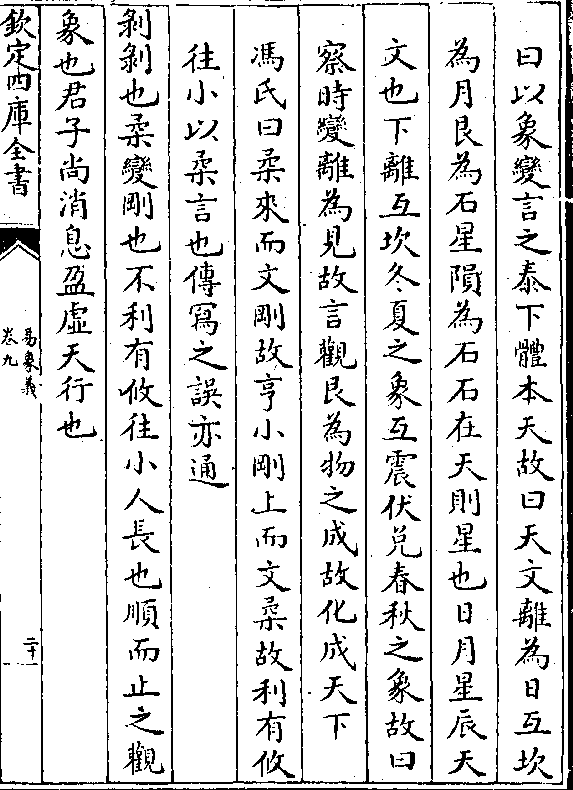 曰以象變言之泰下體本天故曰天文離為日互坎
為月艮為石星隕為石石在天則星也日月星辰天
文也下離互坎冬夏之象互震伏兌春秋之象故曰
察時變離為見故言觀艮為物之成故化成天下
馮氏曰柔來而文剛故亨小剛上而文柔故利有攸
往小以柔言也傳寫之誤亦通
剝剝也柔變剛也不利有攸往小人長也順而止之觀
象也君子尚消息盈虛天行也
欽定四庫全書
易象義
卷九
二十